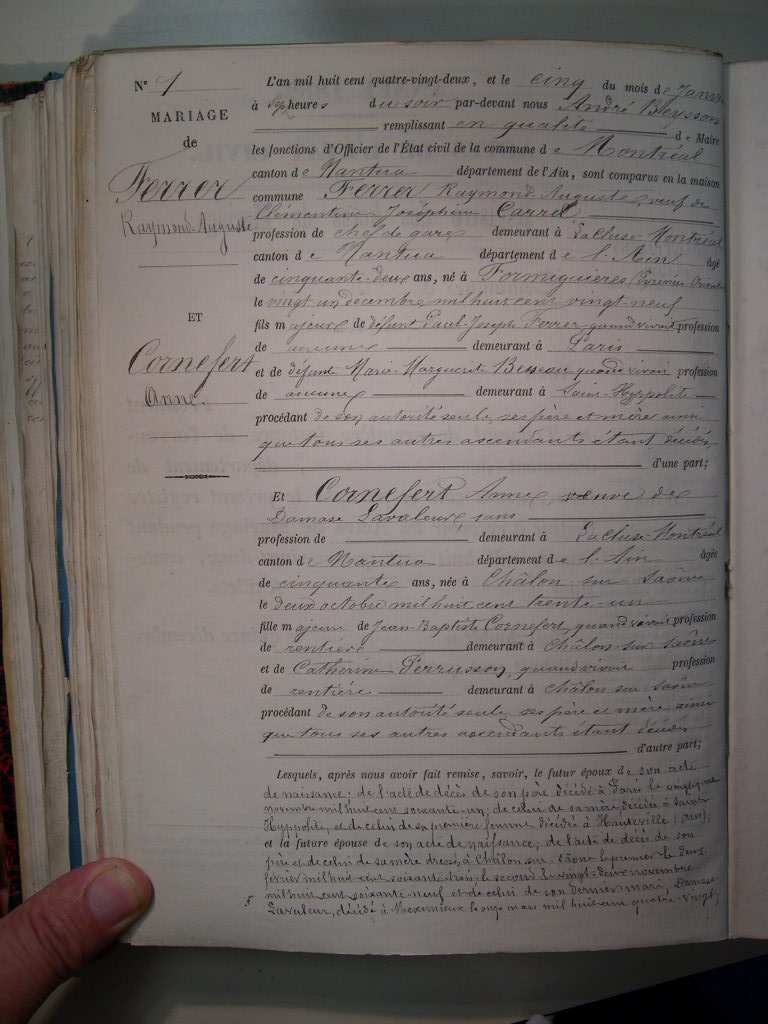 N° 1
MARIAGE
de
Ferrer
Raymond-Auguste
ET
Cornefert
Anne.
L'an mil huit cent quatre-vingt-deux, et le cinq du mois de Janvier
à sept heures du soir par-devant nous André Bleysson
remplissant en qualité de Maire
les fonctions d'Officier de l'État civil de la commune de Montréal
canton de Nantua département de l'Ain, sont comparus en la maison
commune Ferrer Raymond Auguste, veuf de
Clémentine Joséphine Carrel
profession de chef de gare demeurant à La Cluse Montréal
canton de Nantua département de l'Ain âgé
de cinquante-deux ans, né à Formiguières (Pyrénées Orientales
le vingt un décembre mil huit cent vingt-neuf
fils majeur de défunt Paul-Joseph Ferrer, quand vivait profession
de aucune demeurant à Paris
et de défunte Marie Marguerite quand vivait profession
de aucune demeurant à Saint-Hyppolite
procédant de son autorité seule, ses père et mère ainsi
que tous ses autres ascendants étant décédés
d'une part;
Et Cornefert Anne, veuve de
Damase Lavaleur, sans
profession de demeurant à La Cluse-Montréal
canton de Nantua département de l'Ain âgée
de cinquante ans, née à Châlon sur Saône
le deux octobre mil huit cent trente-un
fille majeure de Jean-Baptiste Cornefert, quand vivait profession
de rentière demeurant à Châlon sur Saône
et de Catherine Perrusson, quand vivait profession
de rentière demeurant à Châlon sur Saône
procédant de son autorité seule, ses père et mère ainsi
que tous ses autres ascendants étant décédés
d'autre part;
Lesquels, après nous avoir fait remise, savoir, le futur époux de son acte
de naissance; de l'acte de décès de son père décédé à Paris le vingt
novembre mil huit cent soixante-un, de celui de sa mère, décédée à Saint
Hyppolite, et de celui de sa première femme décédée à Hauteville (Ain);
et la future épouse de son acte de naissance; de l'acte de décès de son
père et de celui de sa mère dressés à Châlon sur Saône le premier le deux
février mil huit cent soixante-trois, le second le vingt-deux novembre
mil huit cent soixante-neuf et de celui de son dernier mari, Damase
Lavaleur, décédé à Meximieux le onze mars mil huit cent quatre-vingt;